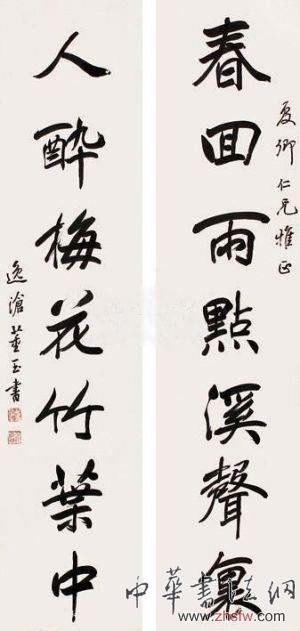 春回雨點溪聲裏
夏卿仁兄雅正
人醉梅花竹葉中
逸滄董玉書
中華書法網
www.zhsfw.com